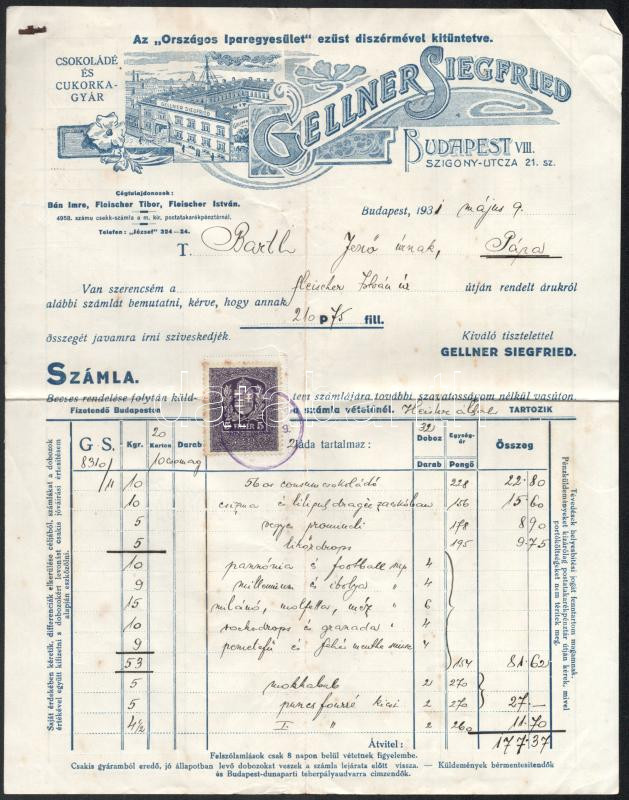 Az „Országos Iparegyesület" ezüst diszérmével kitüntetve.
CSOKOLÁDÉ
ÉS
CUKORKA-
GYÁR
GELLNER SIEGFRIED
GELLNER SIEGFRIED
BUDAPEST VIII.
SZIGONY-UTCZA 21. SZ.
Cégtulajdonosok:
Bán Imre, Fleischer Tibor, Fleischer István.
4958. számu csekk-számla a m. kir. postatakarékpénztárnál.
Telefon: „József" 324—24.
Budapest, 1931 május 9.
T. Barth Jenő úrnak, Pápa
Van szerencsém a fleischer István úr útján rendelt árukról
alábbi számlát bemutatni, kérve, hogy annak
210 P 75 fill.
összegét javamra irni sziveskedjék.
Kiváló tisztelettel
GELLNER SIEGFRIED.
SZÁMLA.
Becses rendelése folytán küld- tem számlájára további szavatosságom nélkül vasúton.
Fizetendő Budapesten a számla vételénél. TARTOZIK
G S. Kgr. 20 Karton Darab 2 láda tartalmaz: 32 Doboz Egység-ár Összeg
8310/ 10 csomag Darab Pengő
11 10 56 os consumcsokoládé 228 22.80
10 csizma és liliput dragée zacskóban 156 15.60
5 vegyes prominli 178 8.90
5 likőrdrops 195 9.75
10 pannónia és football 4
9 millenium és ibolya " 4
15 miland, molfetta, méz " 6
10 rocksdrops és granada " 4
9 pemetefű és fehér mentha 4
53 154 81.62
5 mokkabab 2 270
5 puncs fourré kicsi 2 270 27.—
4 1/2 I " 2 260 11.70
Átvitel: 177.37
Saját érdekében kéretik, differenciák elkerülése céljából, számlákat a dobozok
értékével együtt kifizetni a dobozokért levonást csakis jóváirási értesitésem
alapján eszközölni.
Tévedések helyesbitési jogát fenntartom magamnak.
Pénzküldeményeket kizárólag postatakarékpénztár útján kérek, mivel
portóköltségeket nem téritek meg.
Felszólamlások csak 8 napon belül vétetnek figyelembe.
Csakis gyáramból eredő, jó állapotban levő dobozokat veszek a számla lejárata előtt vissza. — Küldemények bérmentesitendők
és Budapest-dunaparti teherpályaudvarra cimzendők.